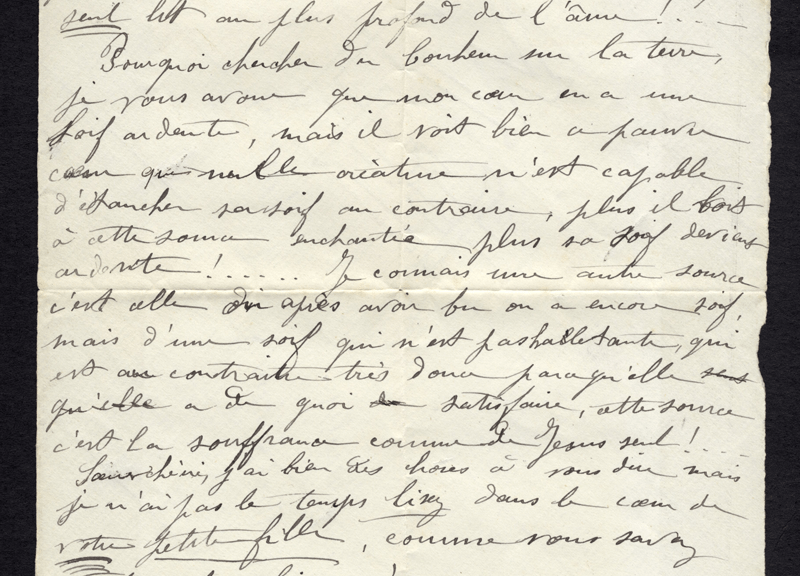 seul lit au plus profond de l'âme!....
Pourquoi chercher du bonheur sur la terre,
je vous avoue que mon cœur en a une
soif ardente, mais il voit bien ce pauvre
cœur que nulle créature n'est capable
d'étancher sa soif au contraire, plus il boit
à cette source enchantée plus sa soif devient
ardente!...... Je connais une autre source
c'est celle où après avoir bu on a encore soif,
mais d'une soif qui n'est pas haletante, qui
est au contraire très douce parce qu'elle
qu'elle a de quoi se satisfaire, cette source
c'est la souffrance connue de Jésus seul!....
Sœur chérie, j'ai bien des choses à vous dire mais
je n'ai pas le temps lisez dans le cœur de
votre petite fille, comme vous savez